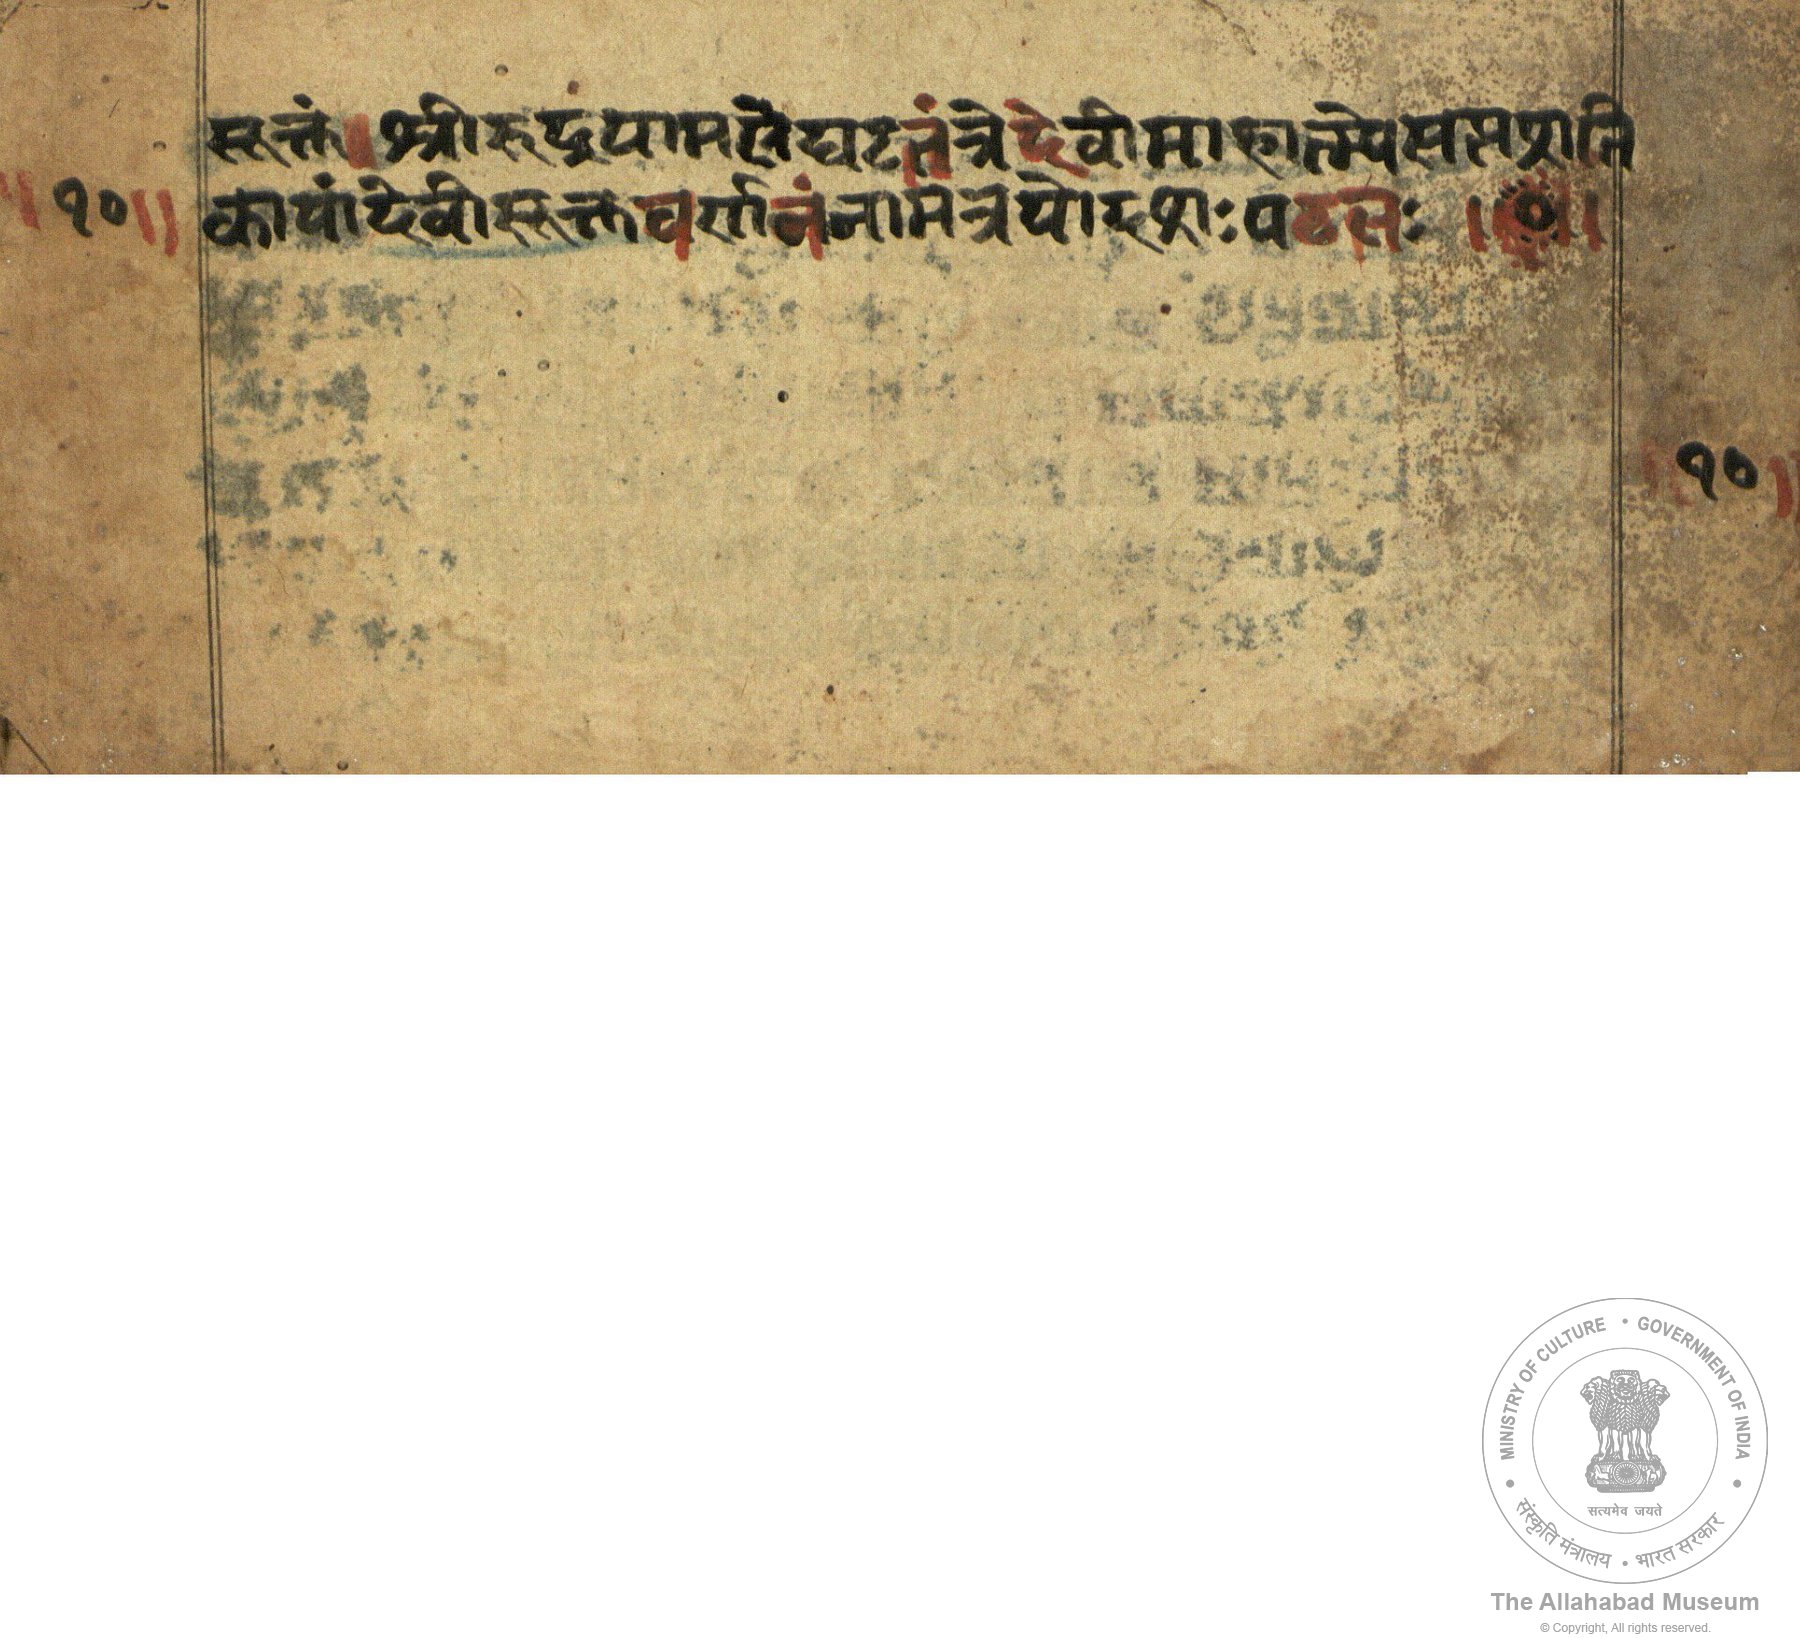 सूक्तं । श्रीरुद्रयामलेघटतंत्रेदेवीमाहात्म्येसप्तशति
॥ १० ॥ कायांदेवीसूक्तवर्णनंनामत्रयोदशः पटलः ॥
१० ॥
MINISTRY OF CULTURE • GOVERNMENT OF INDIA
सत्यमेव जयते
संस्कृति मंत्रालय • भारत सरकार
The Allahabad Museum
© Copyright, All rights reserved.